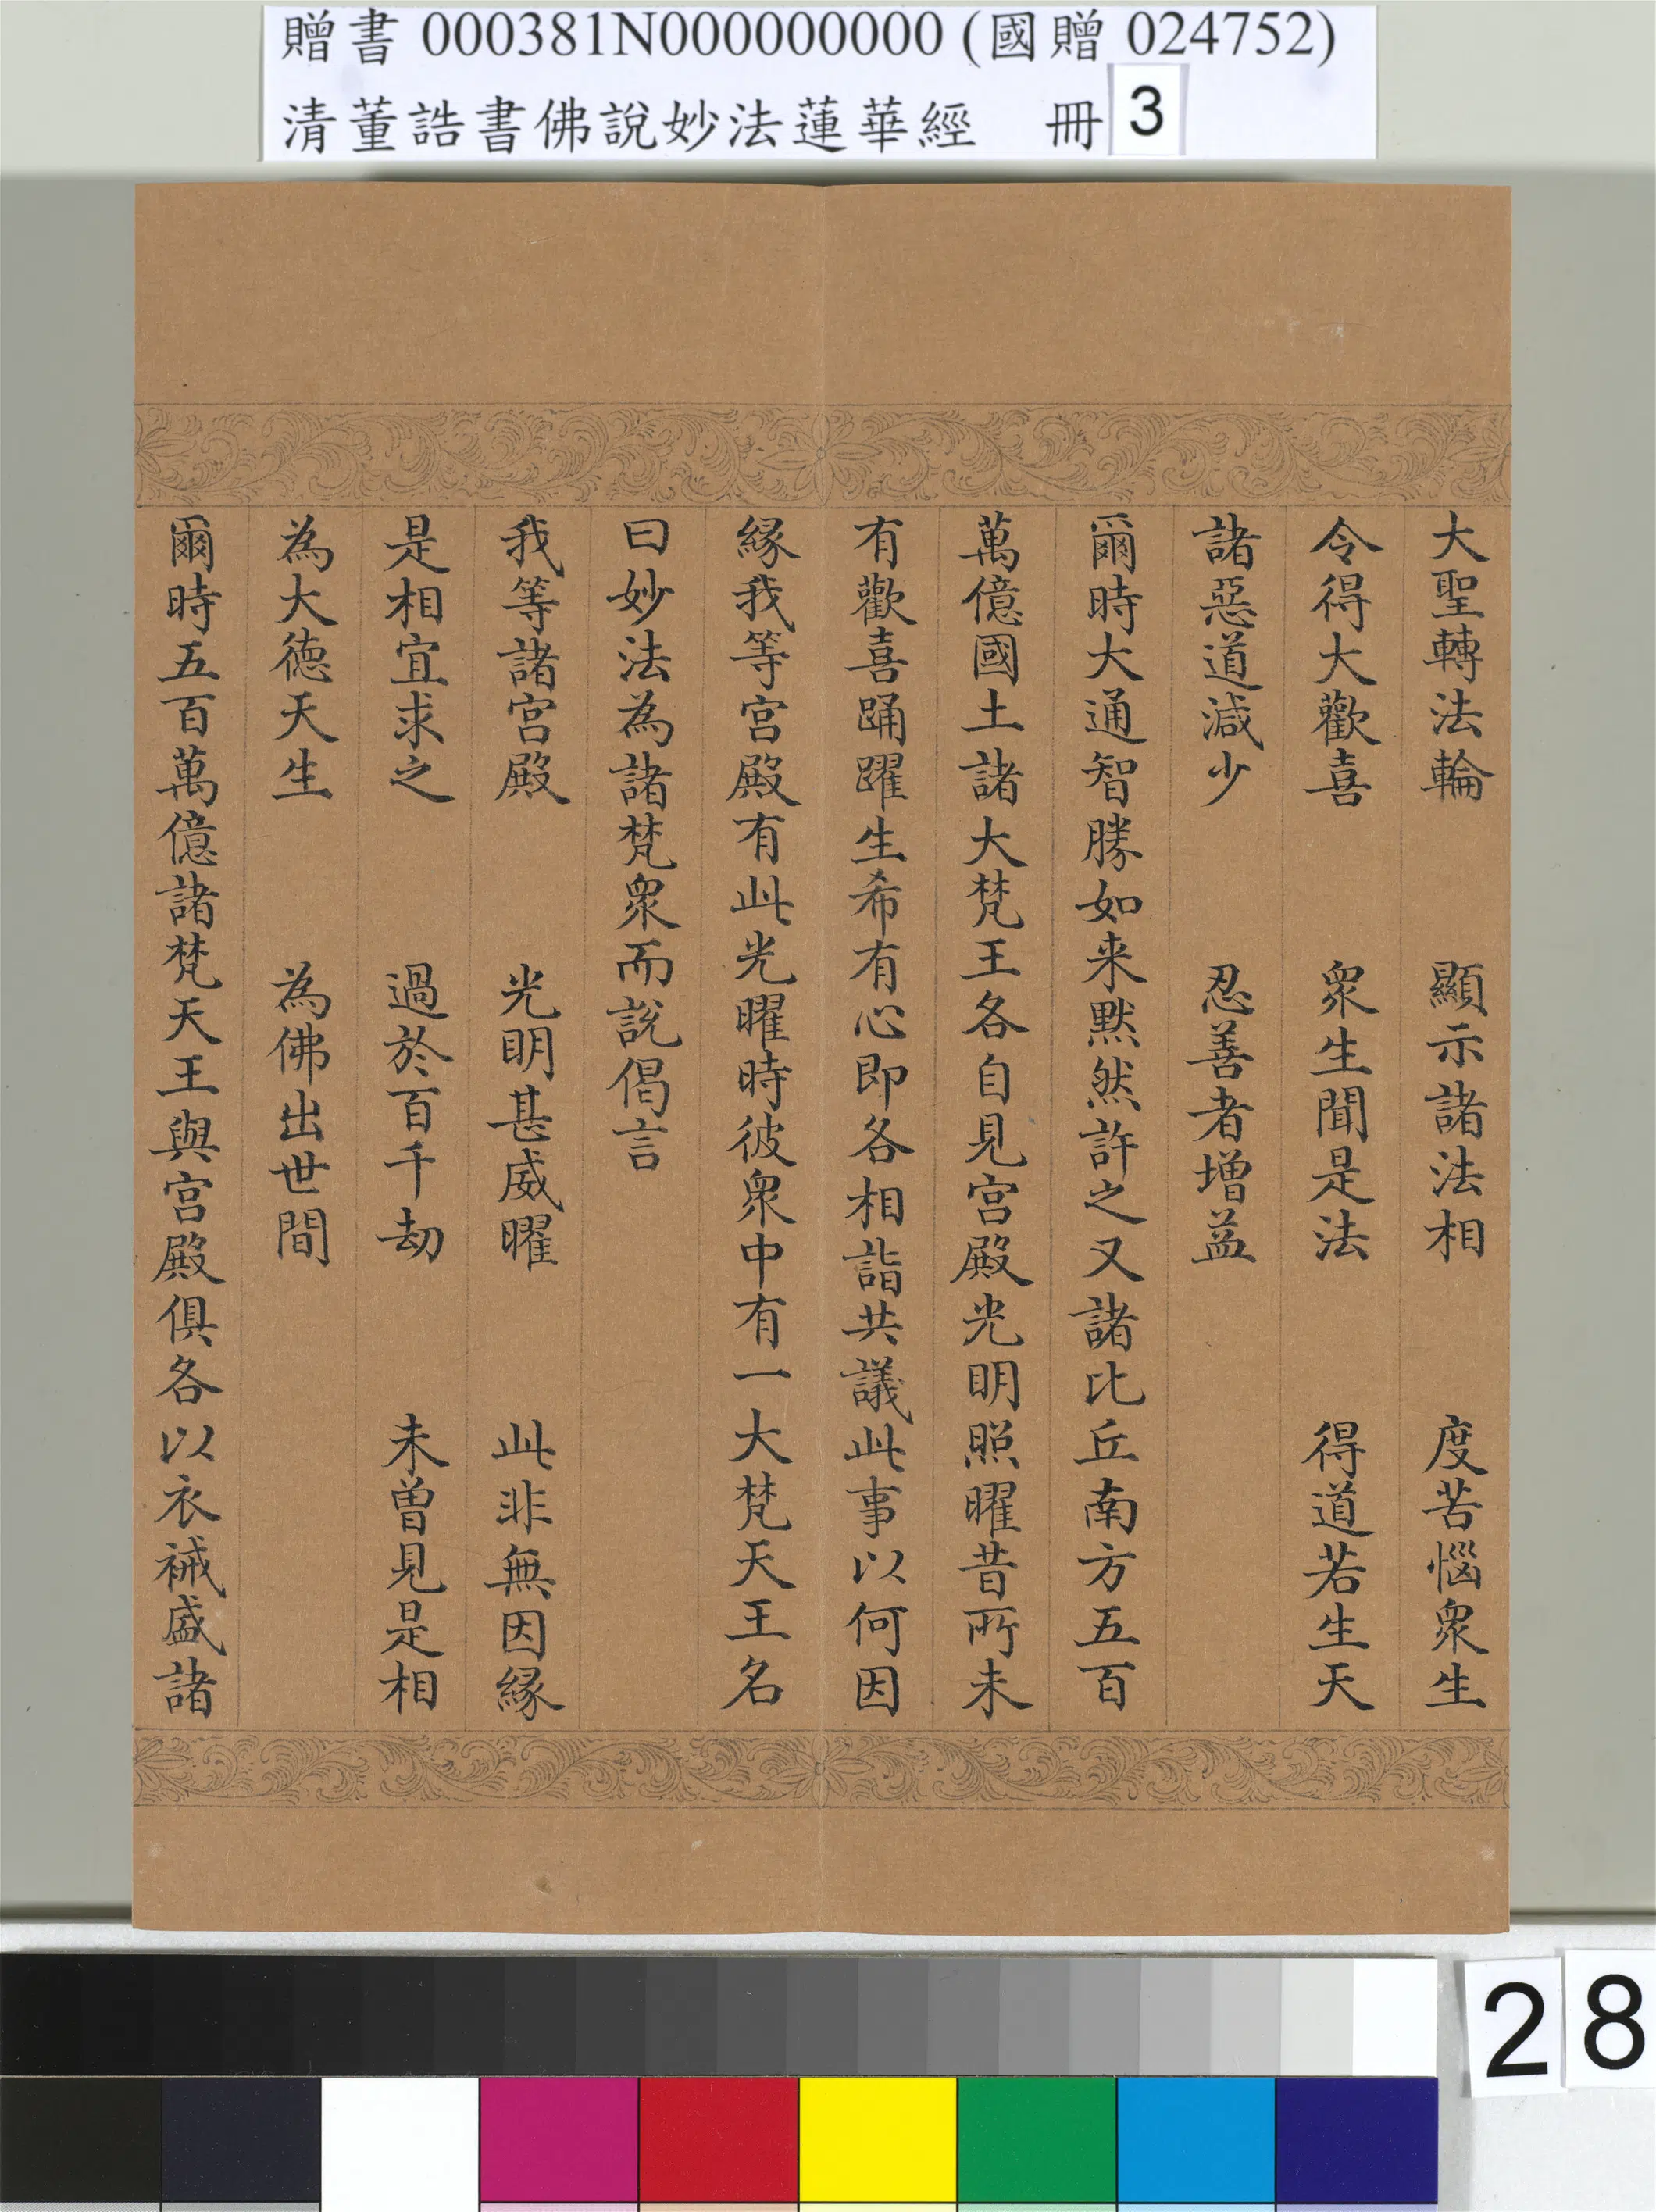 贈書 000381N000000000 (國贈 024752)
清董誥書佛說妙法蓮華經 冊 3
大聖轉法輪 顯示諸法相 度苦惱眾生
令得大歡喜 眾生聞是法 得道若生天
諸惡道減少 忍善者增益
爾時大通智勝如来默然許之又諸比丘南方五百
萬億國土諸大梵王各自見宮殿光明照曜昔所未
有歡喜踊躍生希有心即各相詣共議此事以何因
緣我等宮殿有此光曜時彼眾中有一大梵天王名
曰妙法為諸梵眾而說偈言
我等諸宮殿 光明甚威曜 此非無因緣
是相宜求之 過於百千劫 未曾見是相
為大德天生 為佛出世間
爾時五百萬億諸梵天王與宮殿俱各以衣祴盛諸
28